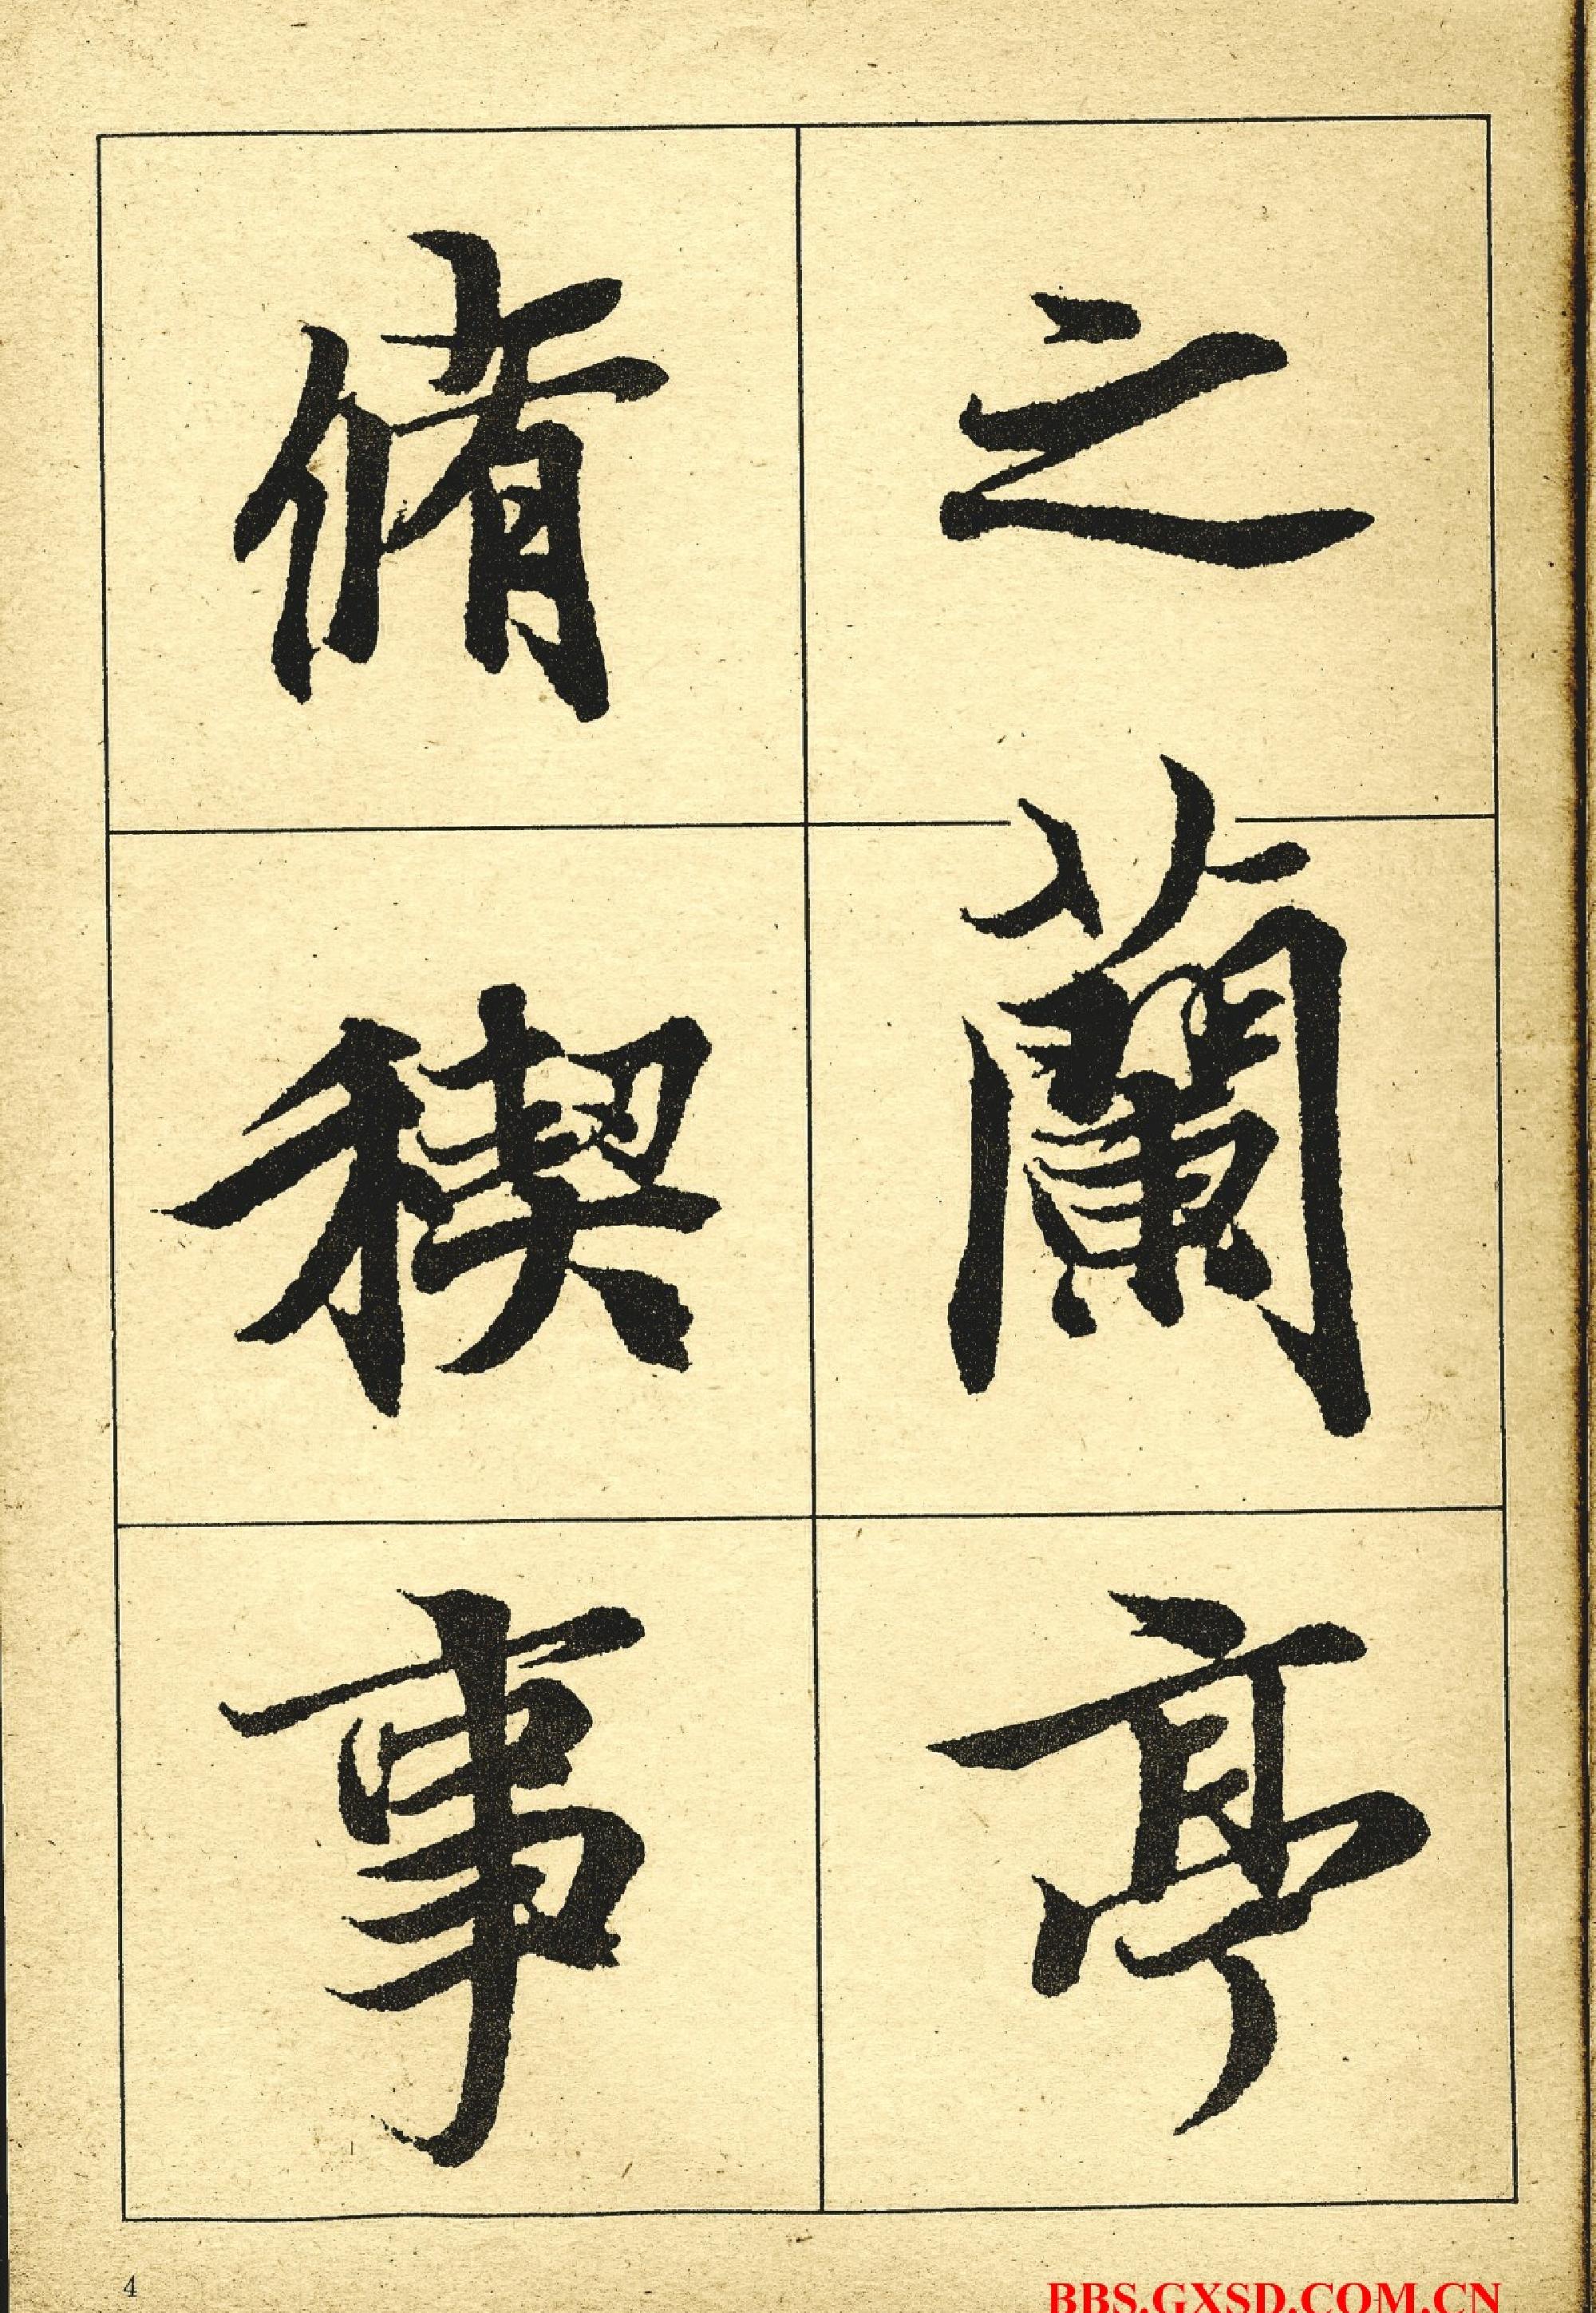 之蘭亭
脩稧事
4
BBS.GXSD.COM.CN